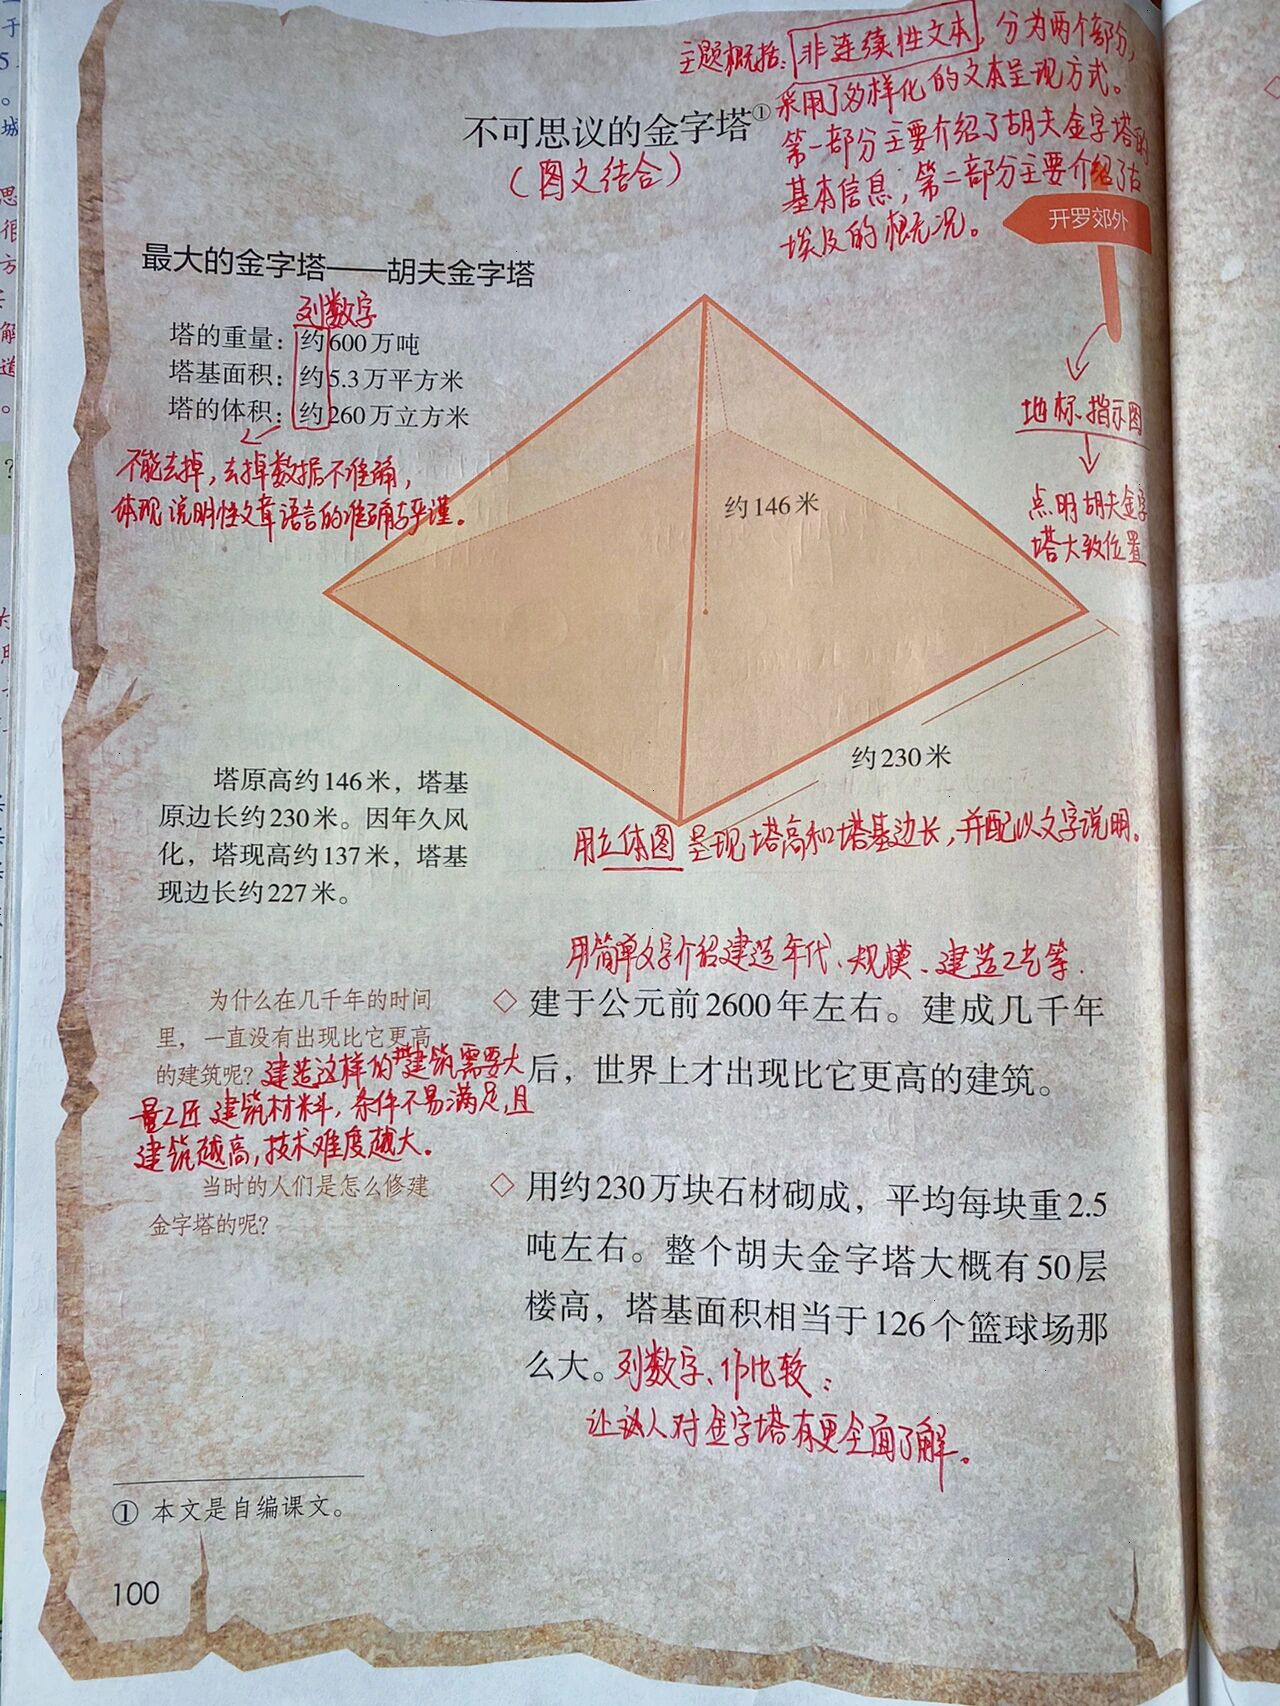 主题概括：非连续性文本，分为两个部分，
采用了多样化的文本呈现方式。
第一部分主要介绍了胡夫金字塔的
基本信息，第二部分主要介绍了古
埃及的概况。
不可思议的金字塔①
（图文结合）
开罗郊外
最大的金字塔——胡夫金字塔
列数字
塔的重量：约600万吨
塔基面积：约5.3万平方米
塔的体积：约260万立方米
不能去掉，去掉数据不准确，
体现说明性文章语言的准确与严谨。
地标、指示图
点明胡夫金字
塔大致位置
约146米
约230米
用立体图呈现塔高和塔基边长，并配以文字说明。
塔原高约146米，塔基
原边长约230米。因年久风
化，塔现高约137米，塔基
现边长约227米。
用简单文字介绍建造年代、规模、建造工艺等.
◇ 建于公元前2600年左右。建成几千年
后，世界上才出现比它更高的建筑。
为什么在几千年的时间
里，一直没有出现比它更高
的建筑呢？
建造这样的建筑需要大
量工匠建筑材料，条件不易满足，且
建筑越高，技术难度越大。
当时的人们是怎么修建
金字塔的呢？
◇ 用约230万块石材砌成，平均每块重2.5
吨左右。整个胡夫金字塔大概有50层
楼高，塔基面积相当于126个篮球场那
么大。
列数字、作比较：
让人对金字塔有更全面了解。
① 本文是自编课文。
100